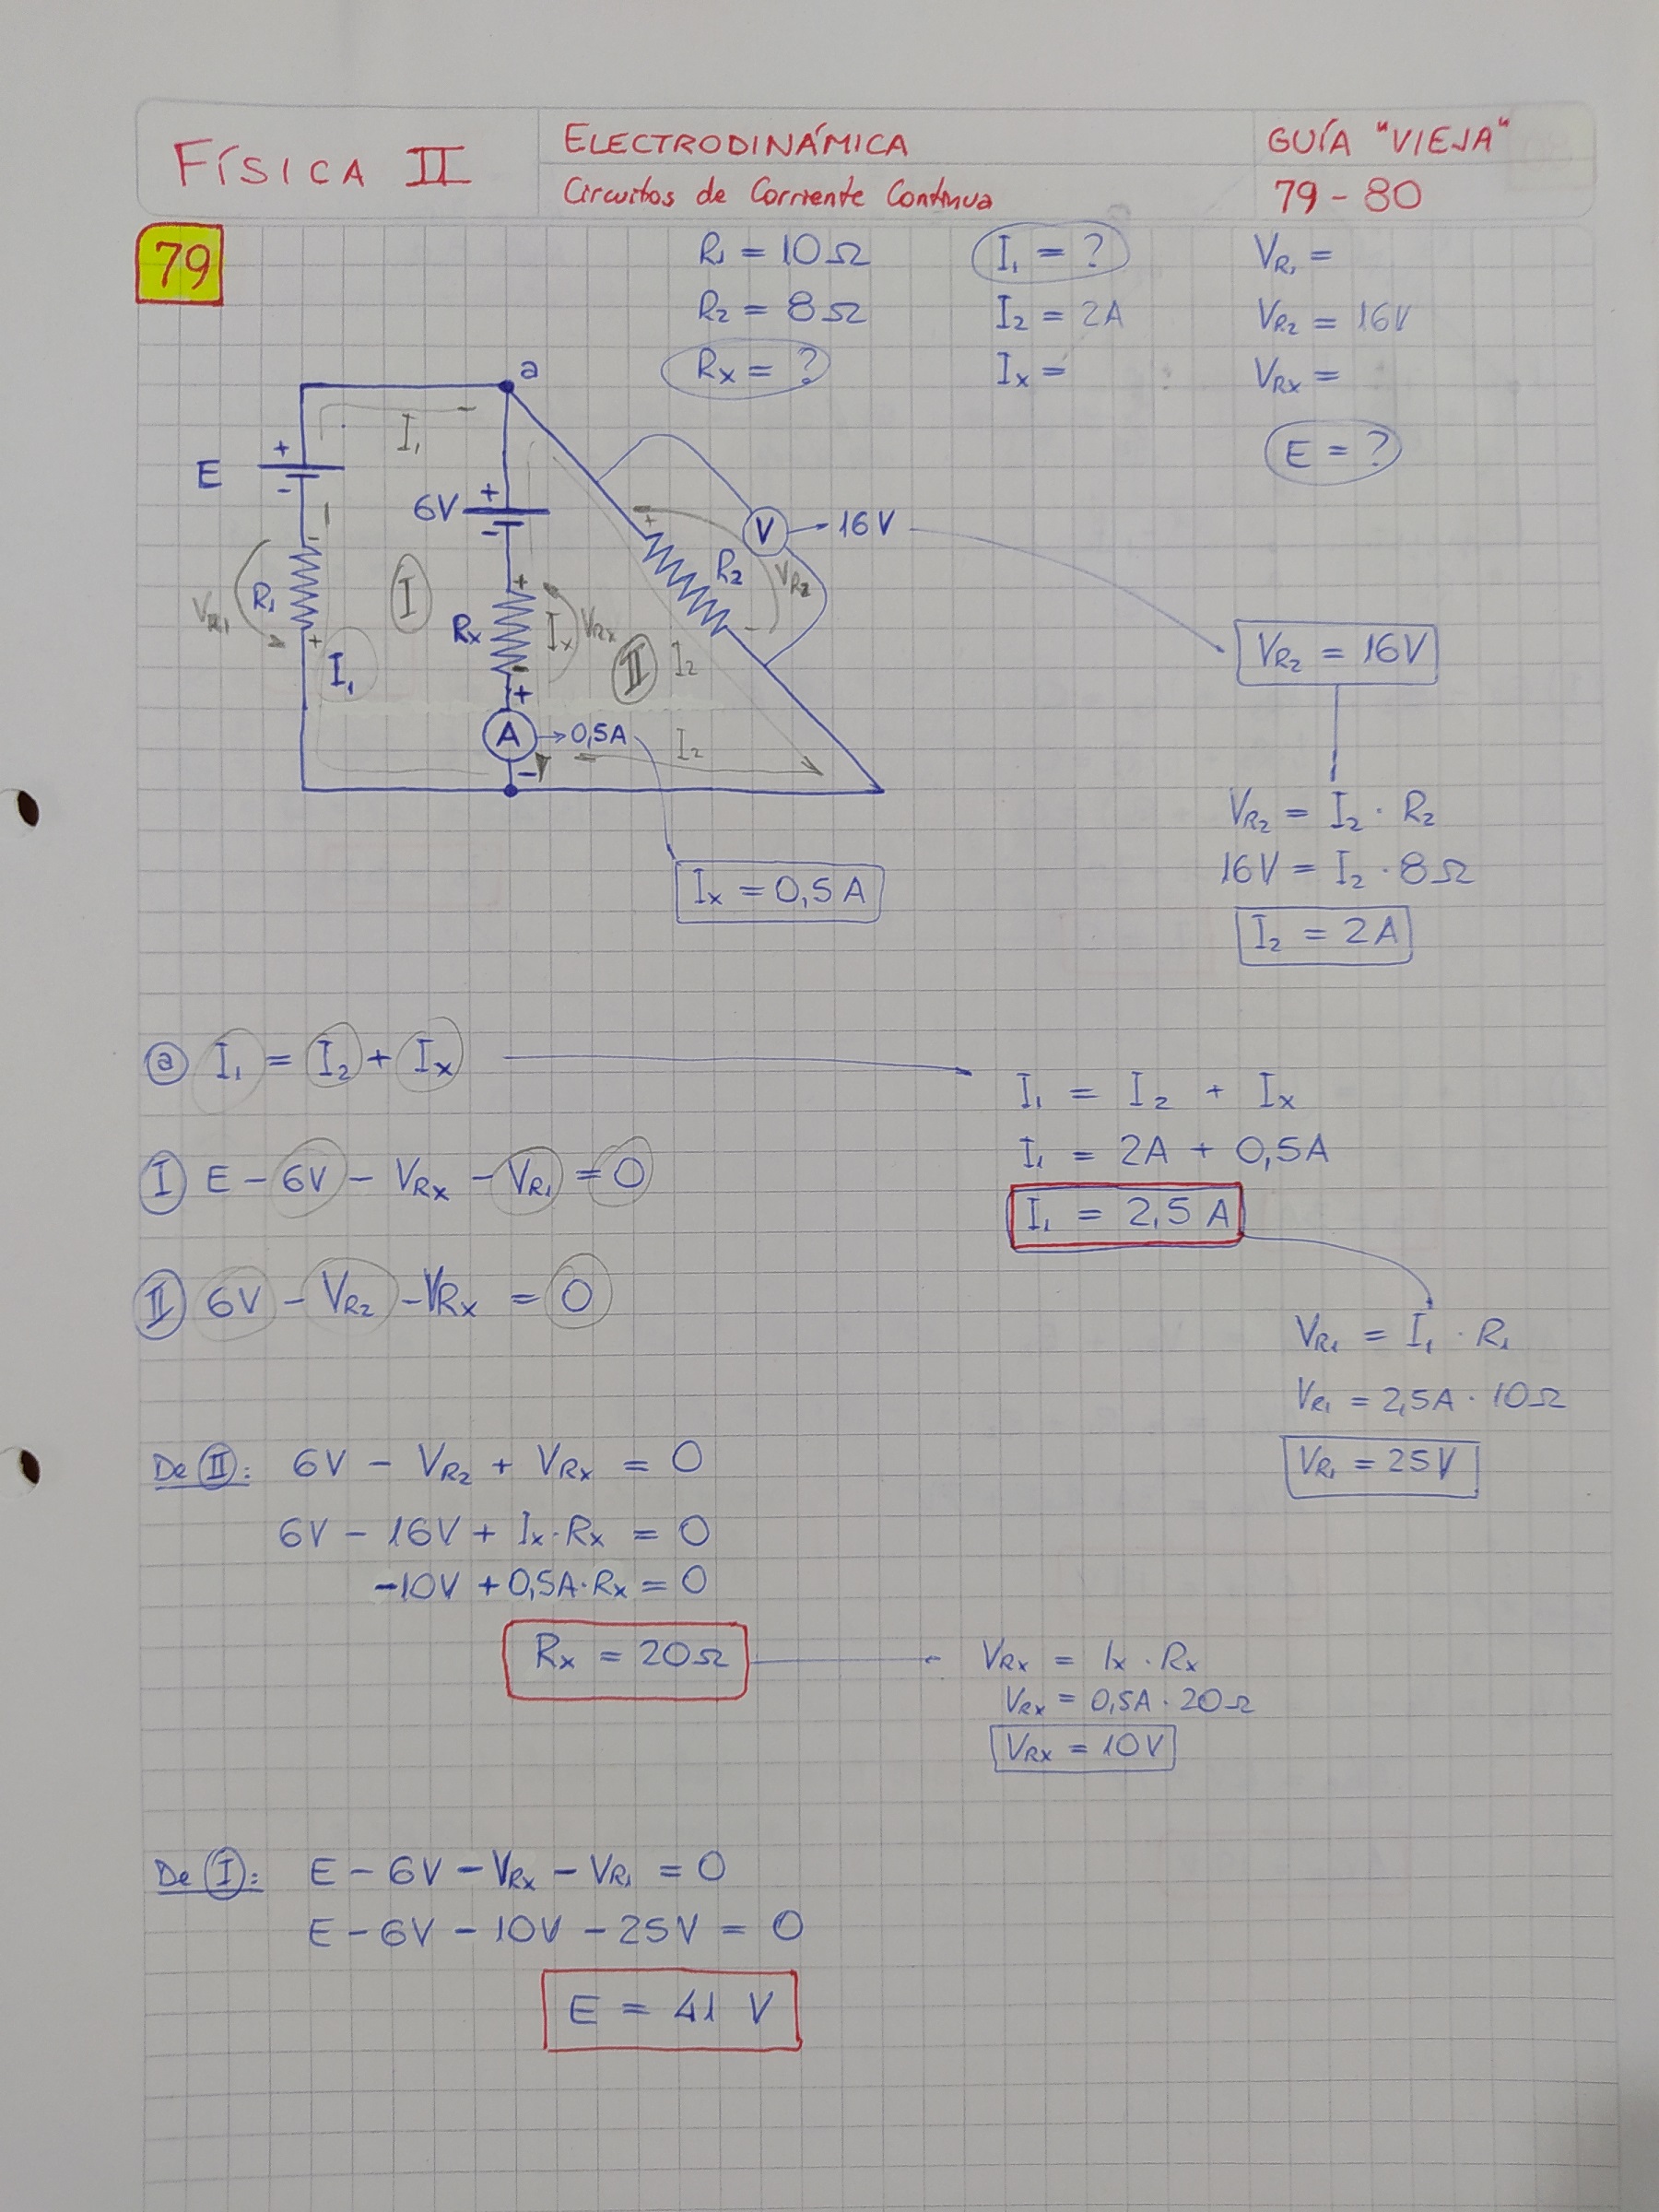 FÍSICA II
ELECTRODINÁMICA
Circuitos de Corriente Continua
GUÍA "VIEJA"
79 - 80
79
R1 = 10Ω
I1 = ?
VR1 =
R2 = 8Ω
I2 = 2A
VR2 = 16V
Rx = ?
Ix =
VRx =
E = ?
a
I1
+
E
-
+
6V
-
-
I
R1
VR1
+
I1
+
Rx
Ix
VRx
-
+
A → 0,5A
-
II
I2
I2
+
R2
VR2
-
V → 16V
VR2 = 16V
VR2 = I2 · R2
16V = I2 · 8Ω
I2 = 2A
Ix = 0,5A
a I1 = I2 + Ix
I1 = I2 + Ix
I1 = 2A + 0,5A
I1 = 2,5 A
I E - 6V - VRx - VR1 = 0
II 6V - VR2 - VRx = 0
VR1 = I1 · R1
VR1 = 2,5A · 10Ω
VR1 = 25V
De II: 6V - VR2 + VRx = 0
6V - 16V + Ix·Rx = 0
-10V + 0,5A·Rx = 0
Rx = 20Ω
VRx = Ix · Rx
VRx = 0,5A · 20Ω
VRx = 10V
De I: E - 6V - VRx - VR1 = 0
E - 6V - 10V - 25V = 0
E = 41 V